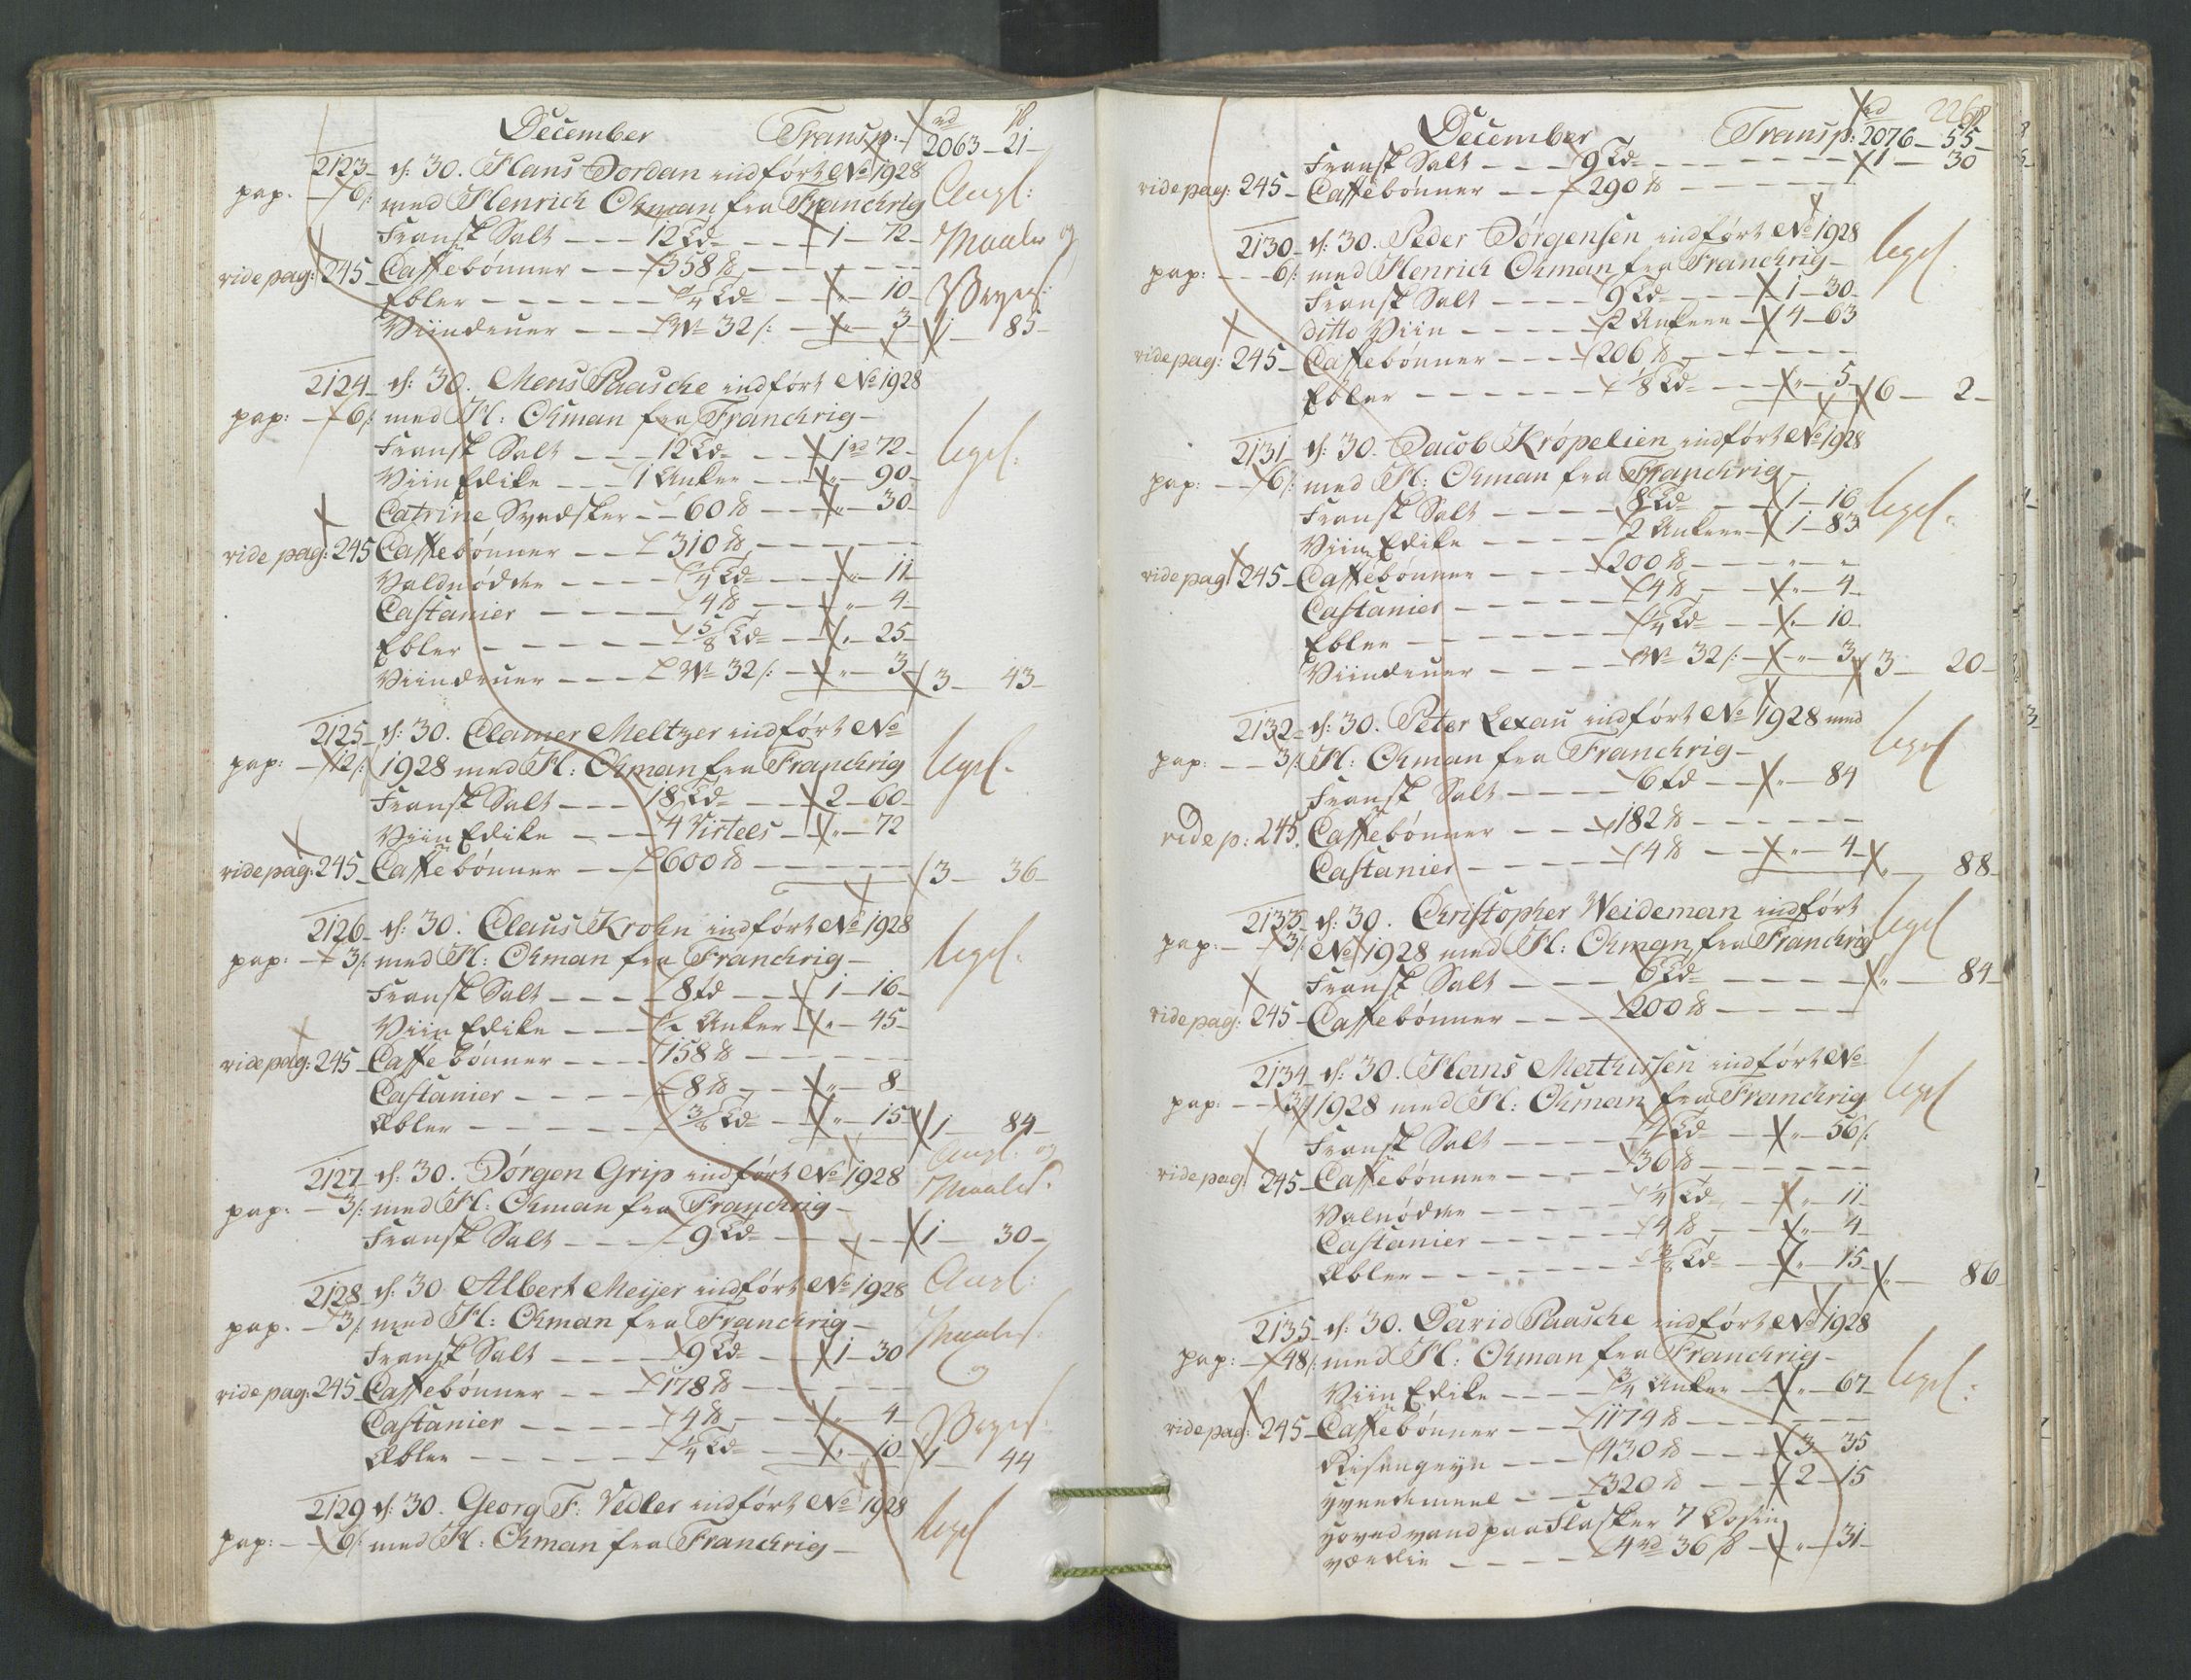 December Transp: rd ß
2063 – 21 –
2123 – d: 30. Hans Jordan indført No 1928
pap. – 6/: med Henrich Ohman fra Franchrig
Angl:
Fransk Salt – – – 12 Td – – 1 – 72 –
Maaler og
ride pag: 245 – Caffebønner – – 358 ℔ – – –
Ebler – – – – – 1/4 Td – – „ – 10 –
Veyer:
Viindruer – – – W: 32/: – „ – 3 – 1 – 85 –
2124 – d: 30. Mens Paasche indført No 1928
pap: – 6/: med H: Ohman fra Franchrig –
Fransk Salt – – – 12 Td – – 1 rd 72 –
Viin Edike – – – 1 Anker – – „ – 90 –
Catrine Svedsker – – 60 ℔ – – „ – 30 –
ride pag: 245 Caffebønner – – 310 ℔ – – –
Valdnødder – – – – 1/4 Td – – „ – 11 –
Castanier – – – – 4 ℔ – – „ – 4 –
Ebler – – – – – 5/8 Td – – „ – 25 –
Viindruer – – – W: 32/: – „ – 3 – 3 – 43 –
2125 – d: 30. Clamer Meltzer indført No
pap: – 12/: 1928 med H: Ohman fra Franchrig
Fransk Salt – – – 18 Td – – 2 – 60 –
Viin Edike – – – 4 Virtels – „ – 72
ride pag: 245 – Caffebønner – – 600 ℔ – – – 3 – 36 –
2126 – d: 30. Claus Krohn indført No 1928
pap: – 3/: med H: Ohman fra Franchrig –
Fransk Salt – – – – 8 td – – 1 – 16 –
Viin Edike – – – 1/2 Anker – „ – 45 –
ride pag: 245 – Caffebønner – – – 158 ℔ – – –
Castanier – – – – 8 ℔ – – „ – 8 –
Æbler – – – – – 3/8 Td – – „ – 15 – 1 – 84 –
2127 – d: 30. Jørgen Grip indført No 1928
Angl: og
pap: – 3/: med H: Ohman fra Franchrig –
Maaler:
Fransk Salt – – – 9 Td – – – 1 – 30 –
2128 – d: 30 Albert Meijer indført No 1928
pap. – 3/: med H: Ohman fra Franchrig –
Maaler:
Fransk Salt – – – – 9 Td – – 1 – 30
og
ride pag: 245 – Caffebønner – – 178 ℔ – – –
Castanier – – – – 4 ℔ – – „ – 4 –
Veyer:
Æbler – – – – – 1/4 Td – – „ – 10 – 1 – 44
2129 d: 30. Georg F: Vedler indført No 1928
pap: – 6/: med H: Ohman fra Franchrig –
226
December Transp: rd ß
2076 – 55 –
Fransk Salt – – – 9 Td – – – 1 – 30
ride pag: 245 – Caffebønner – – 290 ℔ – – –
2130 – d: 30. Peder Jørgensen indført No 1928
pap: – – 6/: med Henrich Ohman fra Franchrig –
Fransk Salt – – – – 9 Td – – 1 – 30 –
ditto Viin – – – – 2 Ankere – 4 – 63
ride pag: 245 – Caffebønner – – – 206 ℔ – – –
Ebler – – – – – 1/8 Td – – „ – 5 – 6 – 2 –
2131 – d: 30. Jacob Krøpelien indført No 1928
pap: – 6/: med H: Ohman fra Franchrig –
Fransk Salt – – – – 8 Td – – 1 – 16
Viin Edike – – – – 2 Ankere – 1 – 83
ride pag: 245 – Caffebønner – – – 200 ℔ – – –
Castanier – – – – 4 ℔ – – „ – 4 –
Ebler – – – – – 1/4 Td – – „ – 10 –
Viindruer – – – – W: 32/: – „ – 3 – 3 – 20 –
2132 – d: 30. Peter Lexau indført No 1928 med
pap: – – 3/: H: Ohman fra Franchrig –
Fransk Salt – – – – 6 td – – „ – 84
ride p: 245. Caffebønner – – – 182 ℔ – – –
Castanier – – – – 4 ℔ – – „ – 4 – „ – 88 –
2133 – d: 30. Christopher Weideman indført
pap: – – 3/: No 1928 med H: Ohman fra Franchrig
Fransk Salt – – – 6 Td – – – „ – 84 –
ride pag: 245 – Caffebønner – – – 200 ℔ – – –
2134 – d: 30. Hans Mathissen indført No
pap: – – 3/: 1928 med H: Ohman fra Franchrig
Fransk Salt – – – – 4 Td – – „ – 56/:
ride pag: 245 – Caffebønner – – – 36 ℔ – – –
Valnødder – – – – 1/4 Td – – „ – 11 –
Castanier – – – – 4 ℔ – – „ – 4 –
Æbler – – – – – 3/8 Td – – „ – 15 – „ – 86
2135 – d: 30. David Paasche indført No 1928
pap: – 48/: med H: Ohman fra Franchrig –
Viin Edike – – – – 3/4 Anker – „ – 67 –
ride pag: 245 – Caffebønner – – – 1174 ℔ – – –
Risengryn – – – 430 ℔ – – 3 – 35
Hvedemeel – – 320 ℔ – – 2 – 15
Hoved vand paa Flasker 7 Dosin
værdie – – – – 4 rd 36 ß – „ – 31 –